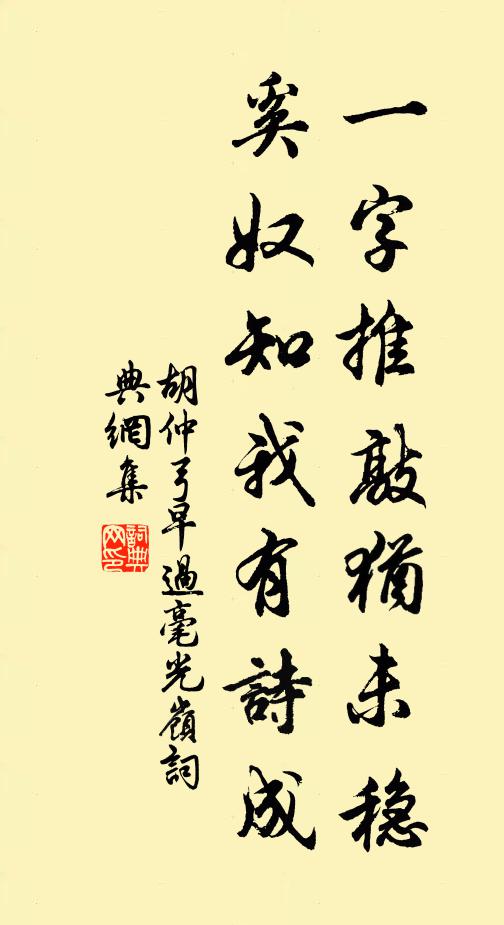 一字推敲猶未穩
奚奴知我有詩成
胡仲弓早過毫光嶺詞
典網集
詞典
网印